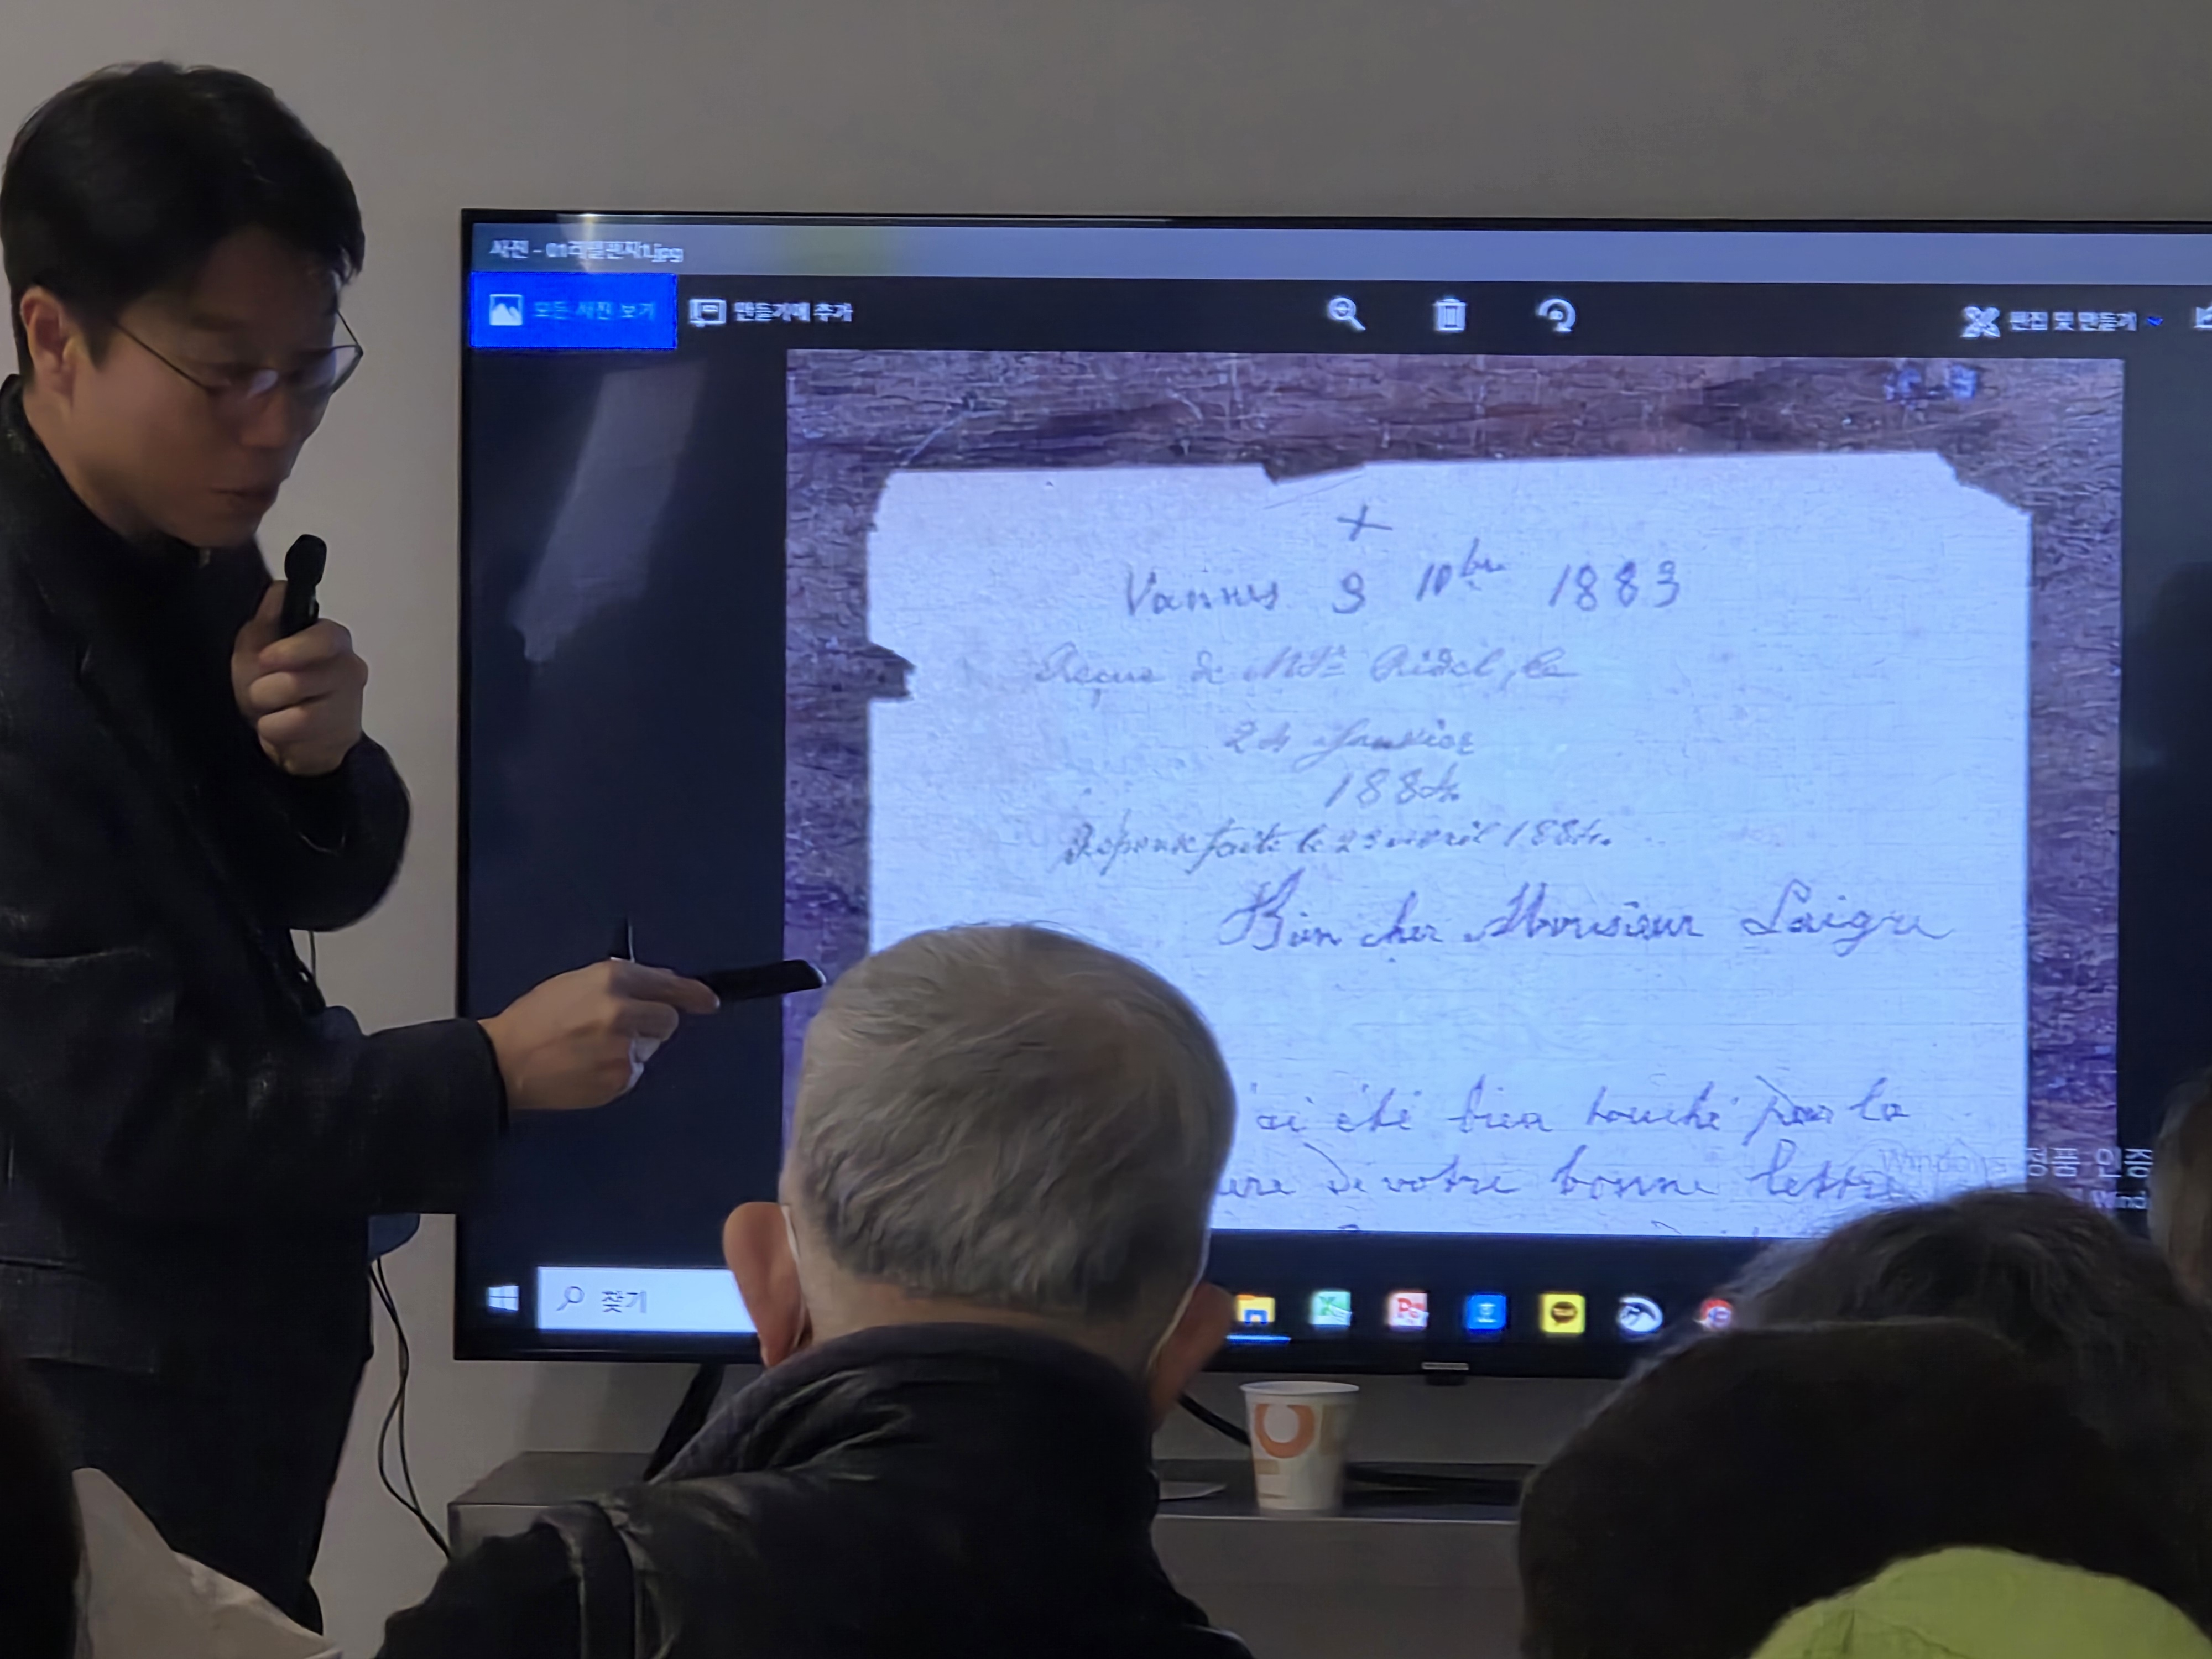 사진 - 01리델편지1.jpg
모든 사진 보기
만들기에 추가
편집 및 만들기
+
Vannes 9 10bre 1883
Reçue de Mgr Ridel, le
24 Janvier
1884.
Réponse faite le 23 avril 1884.
Bien cher Monsieur Laigre
'ai été bien touché par la
de votre bonne lettre
Windows 정품 인증
Wind
찾기